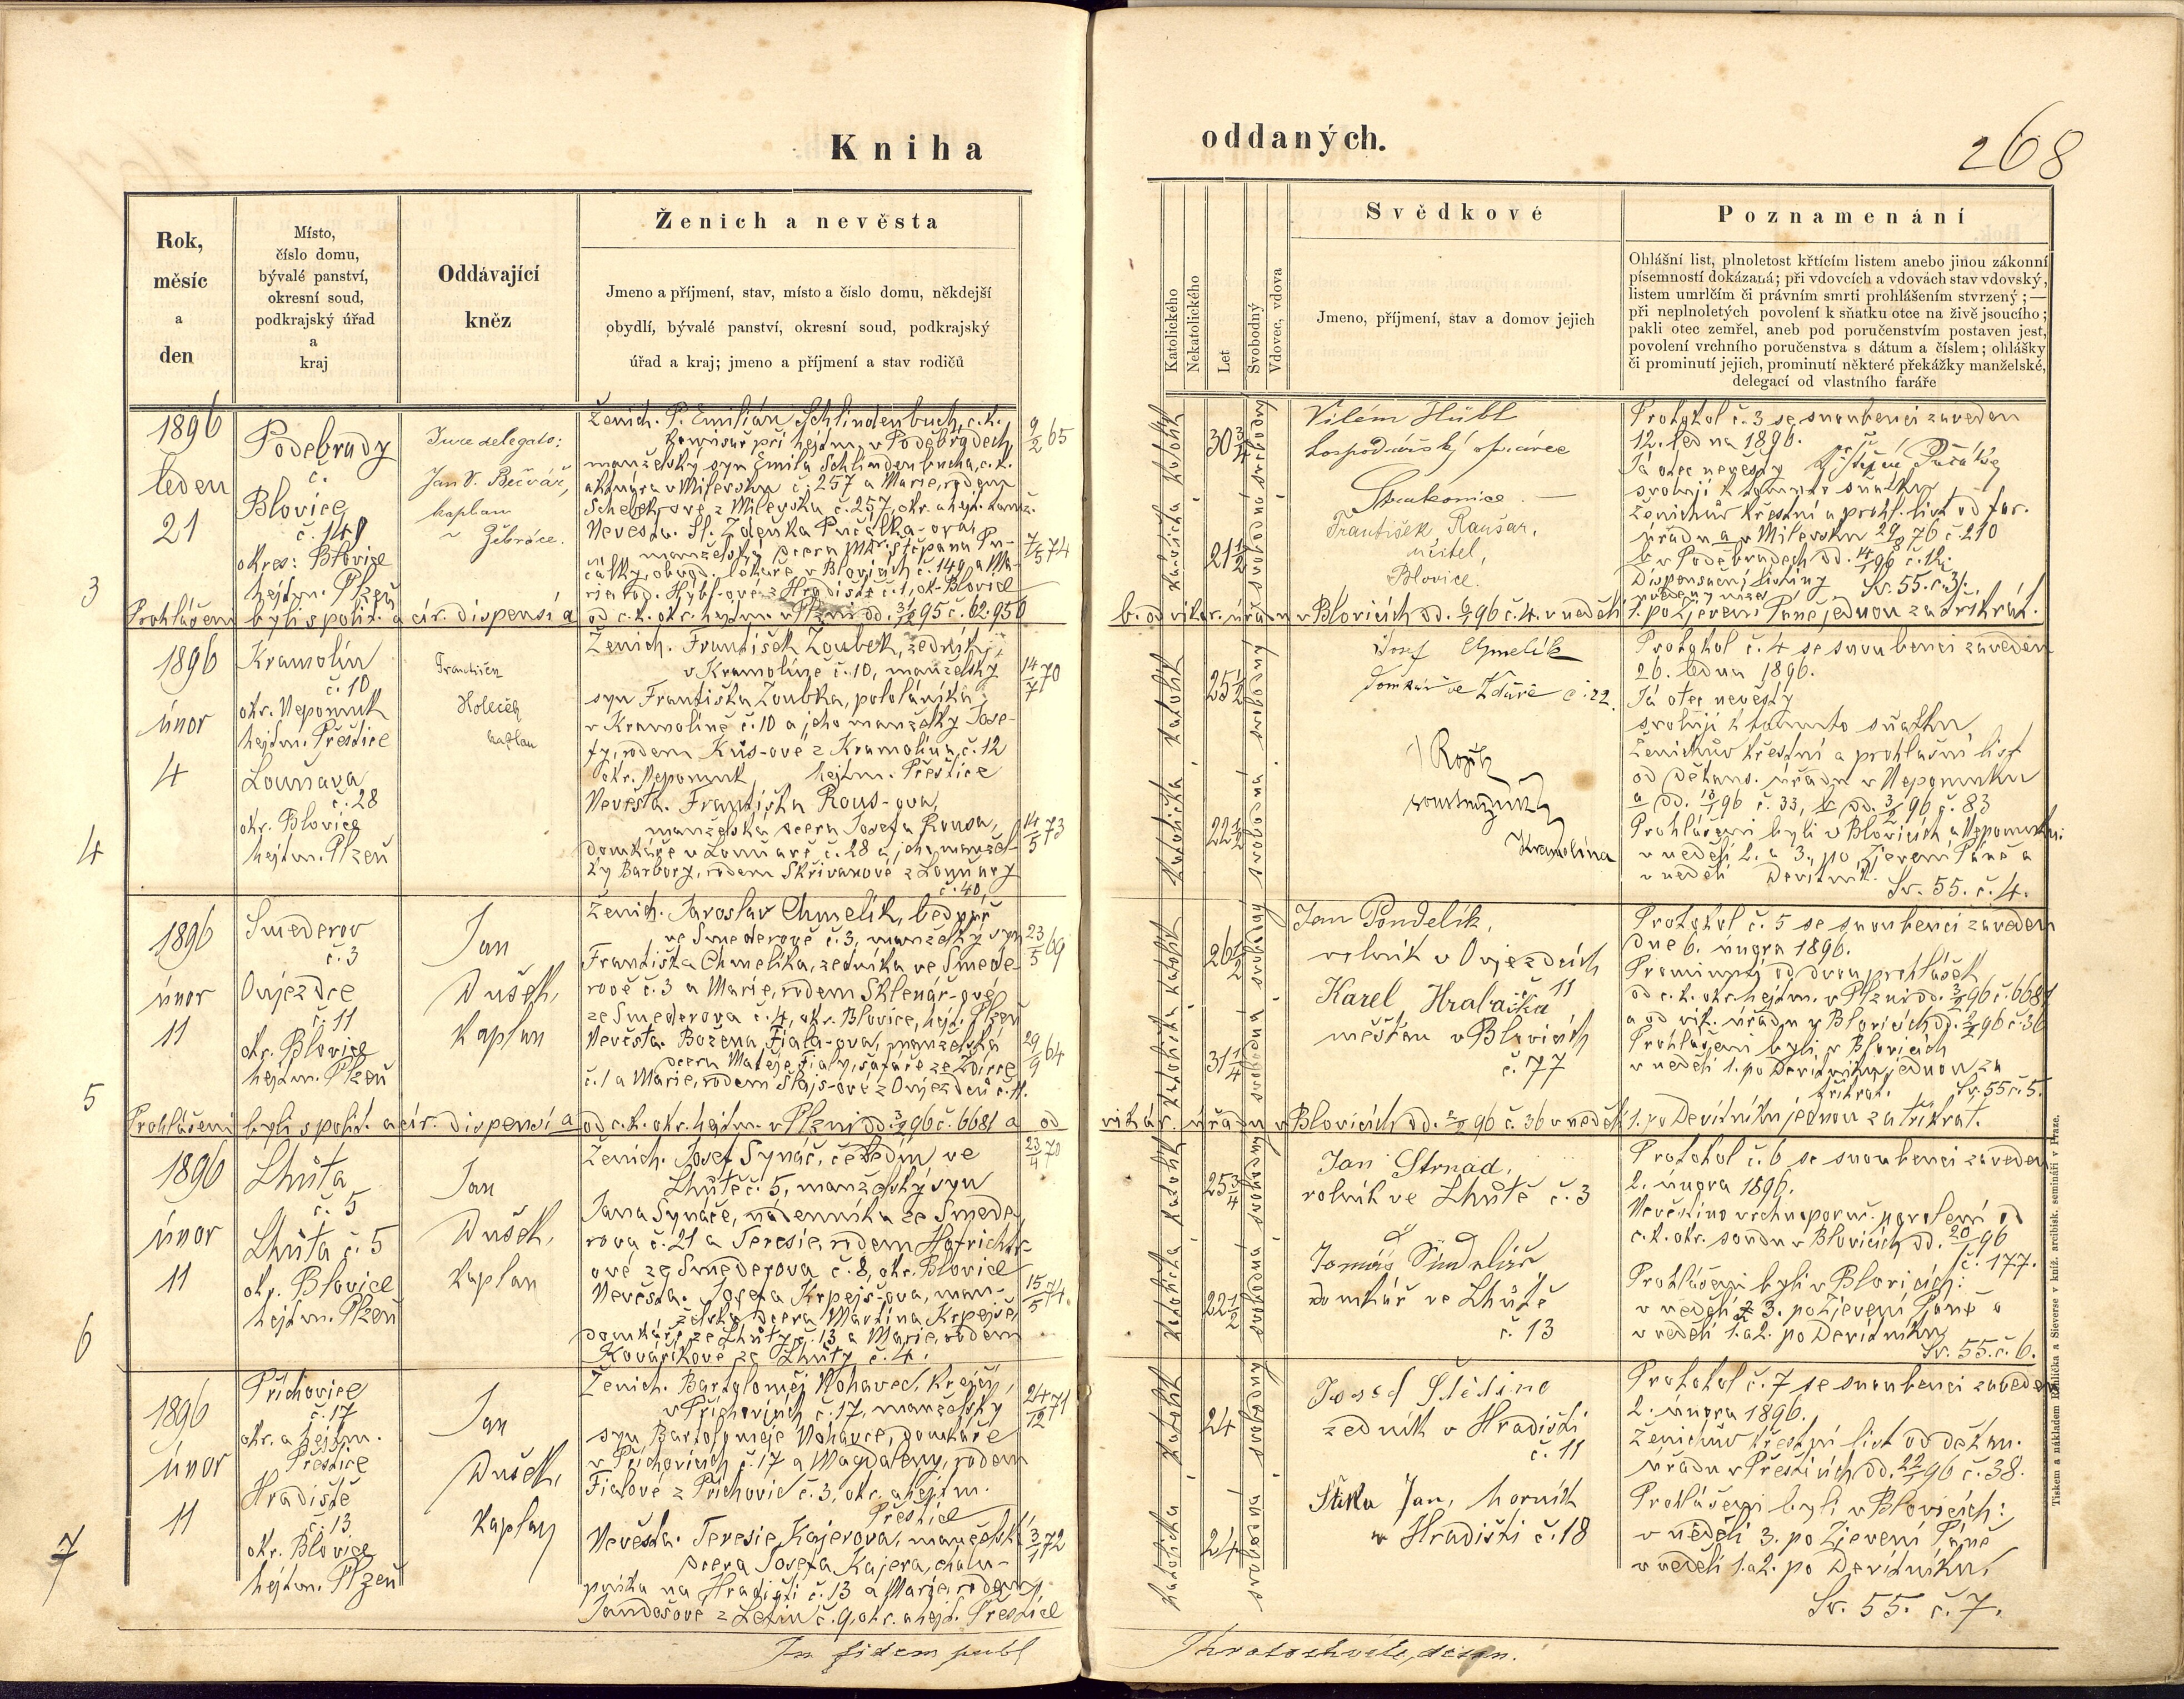 Kniha
oddaných.
268
Rok,
měsíc
a
den
Místo,
číslo domu,
bývalé panství,
okresní soud,
podkrajský úřad
a
kraj
Oddávající
kněz
Ženich a nevěsta
Jmeno a příjmení, stav, místo a číslo domu, někdejší
obydlí, bývalé panství, okresní soud, podkrajský
úřad a kraj; jmeno a příjmení a stav rodičů
Katolického
Nekatolického
Let
Svobodný
Vdovec, vdova
Svědkové
Jmeno, příjmení, stav a domov jejich
Poznamenání
Ohlášní list, plnoletost křtícím listem anebo jinou zákonní
písemností dokázaná; při vdovcích a vdovách stav vdovský,
listem umrlčím či právním smrti prohlášením stvrzený; —
při neplnoletých povolení k sňatku otce na živě jsoucího;
pakli otec zemřel, aneb pod poručenstvím postaven jest,
povolení vrchního poručenstva s dátum a číslem; ohlášky
či prominutí jejich, prominutí některé překážky manželské,
delegací od vlastního faráře
3
1896
leden
21
Poděbrady
č.
Blovice
č. 149
okres: Blovice
hejtm. Plzeň
Jure delegato:
Jan V. Bečvář,
kaplan
v Žebráce.
Ženich. P. Emilián Schlindenbuch, c.k.
komisař při hejtm. v Poděbradech
manželský syn Emila Schlindenbucha, c.k.
aktuára v Milevsku č. 257 a Marie, rodem
z Milevska č. 257, okr. a hejt.
9/2 65
Nevěsta. Sl. Zdeňka Pučálka-ova,
manželská dcera MDr. Štěpána Pu-
čálky, obvod. lékaře v Blovicích č. 149 a Ma-
rie rod. Hýbl-ové z Hradiště č. 1, ok. Blovice
7/5 74
katolík
30 3/4
svobodný
katolička
21 1/2
svobodná
Vilém Hübl
hospodářský správce
František Raušar,
učitel,
Blovice.
Protokol č. 3 se snoubenci zaveden
12. ledna 1896.
Já otec nevěsty
svoluji k tomuto sňatku
Ženichův křestní a prohl. list od far.
úřadu a v Milevsku 29/8 76 č. 210
b v Poděbradech dd. 14/1 96 č. 12.
Dispensační listiny
uvedeny níže.
Sv. 55. č. 3.
Prohlášeni byli s polit. a cír. dispensí a od c.k. okr. hejtm. v Plzni dd. 31/12 95 č. 62.950 b. od vikar. úřadu v Blovicích dd. 6/1 96 č. 4. v neděli 1. po Zjevení Páně jednou za třikrát.
4
1896
únor
4
Kramolín
č. 10
okr. Nepomuk
hejtm. Přeštice
Louňava
č. 28
okr. Blovice
hejtm. Plzeň
František
Holeček
kaplan
Ženich. František Zoubek, zedník
v Kramolíně č. 10, manželský
syn Františka Zoubka, pololáníka
v Kramolíně č. 10 a jeho manželky Jose-
fy, rodem Kůs-ové z Kramolína, č. 12
okr. Nepomuk, hejtm. Přeštice
14/7 70
Nevěsta. Františka Rous-ova,
manželská dcera Josefa Rousa,
domkáře v Louňavě č. 28 a jeho manžel-
ky Barbory, rodem Skřivanové z Louňavy
č. 40.
14/5 73
katolík
25 1/2
svobodný
katolička
22 1/2
svobodná
Josef Chmelík
domkář ve Zdíře č. 22.
Kramolína
Protokol č. 4 se snoubenci zaveden
26. ledna 1896.
Já otec nevěsty
svoluji k tomuto sňatku
Ženichův křestní a prohlašní list
od děkans. úřadu v Nepomuku
a dd. 13/1 96 č. 33, b dd. 3/2 96 č. 83
Prohlášeni byli v Blovicích a Nepomuku:
v neděli 2. a 3. po Zjevení Páně a
v neděli Devítník.
Sv. 55. č. 4.
5
1896
únor
11
Smederov
č. 3
Oujezdce
č. 11
okr. Blovice
hejtm. Plzeň
Jan
Dušek,
kaplan
Ženich. Jaroslav Chmelík, bednář
ve Smederově č. 3, manželský syn
Františka Chmelíka, zedníka ve Smede-
rově č. 3 a Marie, rodem Sklenář-ové
ze Smederova č. 4, okr. Blovice, hejt. Plzeň
23/5 69
Nevěsta. Božena Fiala-ova, manželská
dcera Matěje Fialy, šafáře ze Zdírce
č. 1 a Marie, rodem Slajs-ové z Oujezdců č. 11.
29/9 64
katolík
26 1/2
svobodný
katolička
31 1/4
svobodná
Jan Pondelík,
rolník v Oujezdcích
11
Karel Hralaška
měšťan v Blovicích
č. 77
Protokol č. 5 se snoubenci zaveden
dne 6. února 1896.
Prominutí od dvou prohlášek
od c.k. okr. hejtm. v Plzni dd. 3/2 96 č. 6681
a od vik. úřadu v Blovicích dd. 2/2 96 č. 36
Prohlášeni byli v Blovicích
v neděli 1. po Devítníku jednou za
třikrát.
Sv. 55 č. 5.
Prohlášeni byli s polit. a cír. dispensí a od c.k. okr. hejtm. v Plzni dd. 3/2 96 č. 6681 a od vikár. úřadu v Blovicích dd. 2/2 96 č. 36 v neděli 1. po Devítníku jednou za třikrát.
6
1896
únor
11
Lhůta
č. 5
Lhůta č. 5
okr. Blovice
hejtm. Plzeň
Jan
Dušek,
kaplan
Ženich. Josef Synáč, čeledín ve
Lhůtě č. 5, manželský syn
Jana Synáče, nádenníka ze Smede-
rova č. 21 a Teresie, rodem Hofrichtr-
ové ze Smederova č. 8, okr. Blovice
23/4 70
Nevěsta. Josefa Krpejš-ova, man-
želská dcera Martina Krpejše,
domkáře ze Lhůty č. 13 a Marie, rodem
Kovaříkové ze Lhůty č. 4.
15/5 74.
katolík
25 3/4
svobodný
katolička
22 1/2
svobodná
Jan Strnad,
rolník ve Lhůtě č. 3
Tomáš Šindelář
domkář ve Lhůtě
č. 13
Protokol č. 6 se snoubenci zaveden
2. února 1896.
Nevěstino vrchnoporuč. povolení od
c.k. okr. soudu v Blovicích dd. 20/1 96
č. 177.
Prohlášeni byli v Blovicích:
v neděli 3. po Zjevení Páně a
v neděli 1. a 2. po Devítníku
Sv. 55. č. 6.
7
1896
únor
11
Příchovice
č. 17
okr. a hejtm.
Přeštice
Hradiště
č. 13
okr. Blovice
hejtm. Plzeň
Jan
Dušek,
kaplan
Ženich. Bartoloměj Nohavec, krejčí,
v Příchovicích č. 17, manželský
syn Bartoloměje Nohavce, domkáře
v Příchovicích č. 17 a Magdaleny, rodem
Fialové z Příchovic č. 3, okr. a hejtm.
Přeštice
24/12 71
Nevěsta. Teresie Kajerova, manželská
dcera Josefa Kajera, chalu-
pníka na Hradišti č. 13 a Marie, rodem
Jandošové z Letin č. 9, okr. a hejt. Přeštice
3/1 72
katolík
24
svobodný
katolička
24
svobodná
Josef Štětina
zedník v Hradišti
č. 11
Šiška Jan, horník
v Hradišti č. 18
Protokol č. 7 se snoubenci zaveden
2. února 1896.
Ženichův křestní list od děkan.
úřadu v Přešticích dd. 22/1 96 č. 38.
Prohlášeni byli v Blovicích:
v neděli 3. po Zjevení Páně
v neděli 1. a 2. po Devítníku,
Sv. 55. č. 7.
In fidem publ
Thratochvile, děkan.
Tiskem a nákladem Rohlíčka a Sieverse v kníž. arcibisk. semináři v Praze.